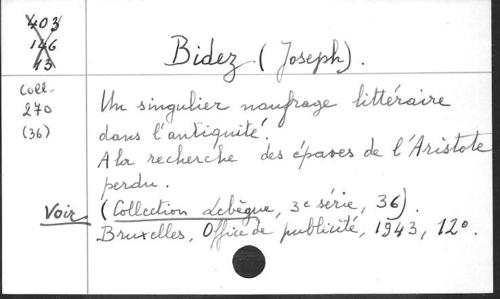 403
146
13
Bidez (Joseph).
Coll.
270
(36)
Un singulier naufrage littéraire
dans l'antiquité.
A la recherche des épaves de l'Aristote
perdu.
Voir (Collection Lebègue, 3e série, 36).
Bruxelles, Office de publicité, 1943, 12°.